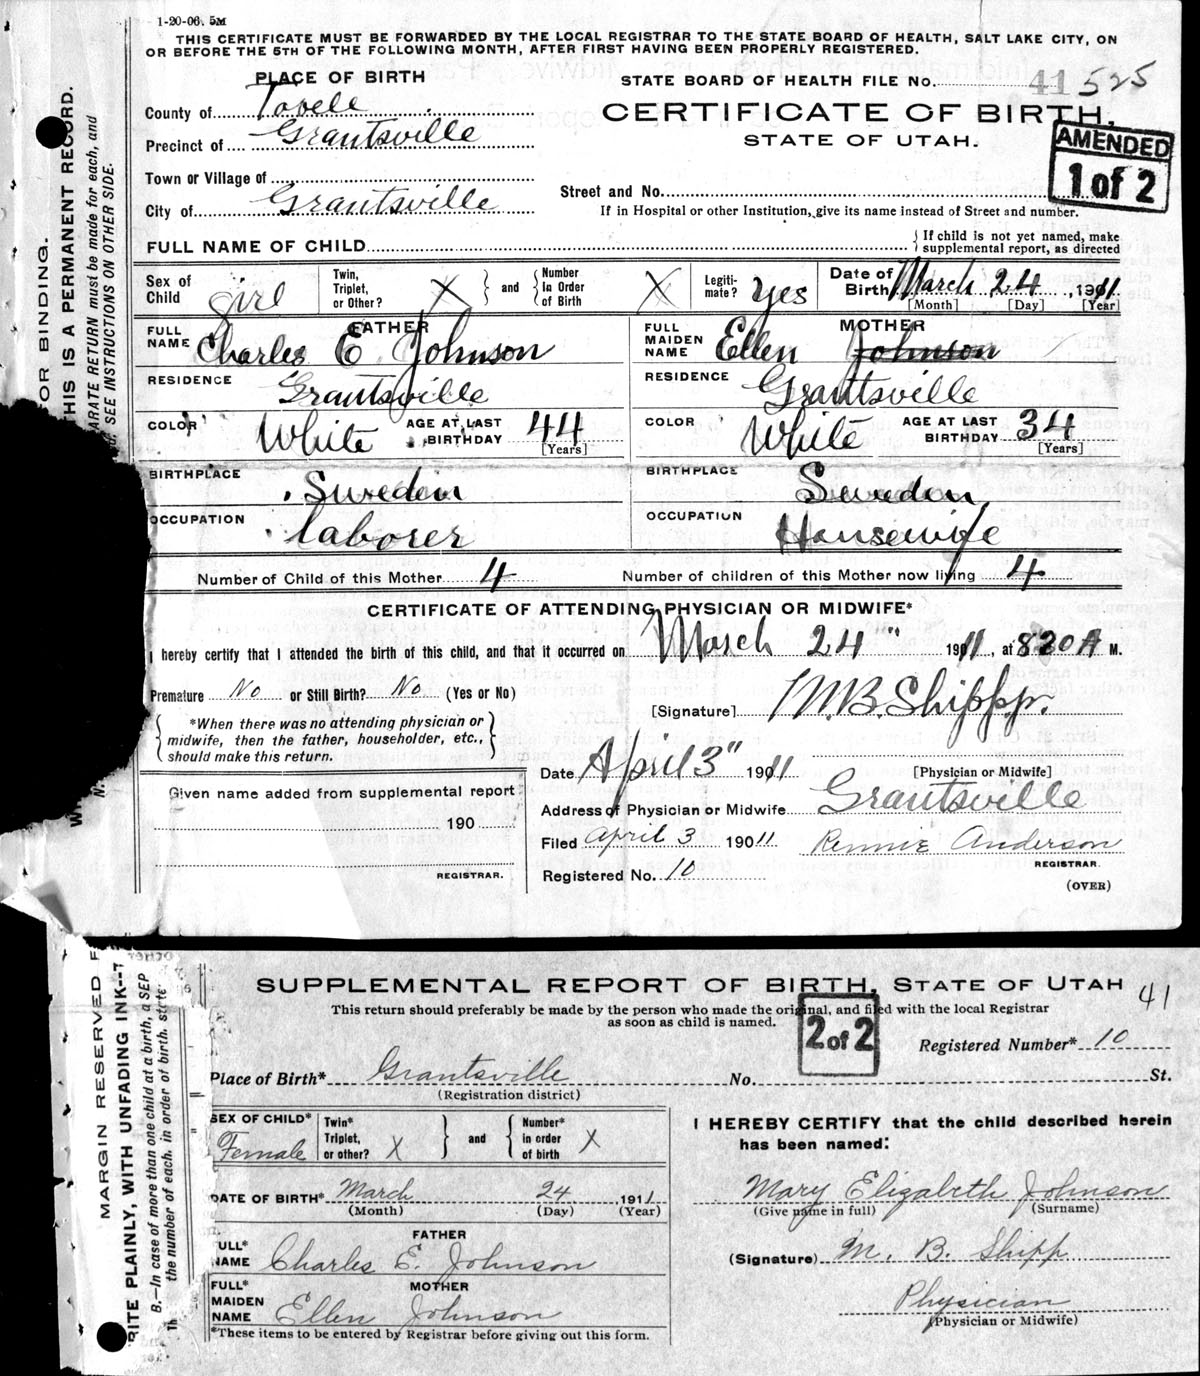 1-20-06. 5M
THIS CERTIFICATE MUST BE FORWARDED BY THE LOCAL REGISTRAR TO THE STATE BOARD OF HEALTH, SALT LAKE CITY, ON
OR BEFORE THE 5TH OF THE FOLLOWING MONTH, AFTER FIRST HAVING BEEN PROPERLY REGISTERED.
PLACE OF BIRTH
STATE BOARD OF HEALTH FILE No. 41 525
County of Tooele
CERTIFICATE OF BIRTH.
Precinct of Grantsville
STATE OF UTAH.
AMENDED
1 of 2
Town or Village of
Street and No.
City of Grantsville
If in Hospital or other Institution, give its name instead of Street and number.
FULL NAME OF CHILD
If child is not yet named, make
supplemental report, as directed
Sex of Child girl
Twin, Triplet, or Other? X and Number In Order of Birth X
Legiti-mate? yes
Date of Birth March 24, 1911
[Month] [Day] [Year]
FATHER
FULL NAME Charles E Johnson
MOTHER
FULL MAIDEN NAME Ellen Johnson
RESIDENCE Grantsville
RESIDENCE Grantsville
COLOR White AGE AT LAST BIRTHDAY 44 [Years]
COLOR White AGE AT LAST BIRTHDAY 34 [Years]
BIRTHPLACE Sweden
BIRTHPLACE Sweden
OCCUPATION laborer
OCCUPATION Housewife
Number of Child of this Mother 4
Number of children of this Mother now living 4
CERTIFICATE OF ATTENDING PHYSICIAN OR MIDWIFE*
I hereby certify that I attended the birth of this child, and that it occurred on March 24" 1911, at 8 30 A M.
Premature No or Still Birth? No (Yes or No)
[Signature] M.B. Shipp
*When there was no attending physician or
midwife, then the father, householder, etc.,
should make this return.
Date April 3" 1911
[Physician or Midwife]
Given name added from supplemental report
190
REGISTRAR.
Address of Physician or Midwife Grantsville
Filed April 3 190 11 Rennie Anderson
REGISTRAR.
Registered No. 10
(OVER)
OR BINDING.
THIS IS A PERMANENT RECORD.
ARATE RETURN must be made for each, and
SEE INSTRUCTIONS ON OTHER SIDE.
SUPPLEMENTAL REPORT OF BIRTH, STATE OF UTAH 41
This return should preferably be made by the person who made the original, and filed with the local Registrar
as soon as child is named.
2 of 2
Registered Number* 10
Place of Birth* Grantsville No. St.
(Registration district)
SEX OF CHILD* Female
Twin* Triplet, or other? X and Number* in order of birth X
I HEREBY CERTIFY that the child described herein
has been named:
DATE OF BIRTH* March 24, 1911
(Month) (Day) (Year)
Mary Elizabeth Johnson
(Give name in full) (Surname)
FATHER
FULL* NAME Charles E. Johnson
(Signature) M. B. Shipp
MOTHER
FULL* MAIDEN NAME Ellen Johnson
Physician
(Physician or Midwife)
*These items to be entered by Registrar before giving out this form.
MARGIN RESERVED F
RITE PLAINLY, WITH UNFADING INK--T
B.—In case of more than one child at a birth, a SEP
the number of each, in order of birth, state